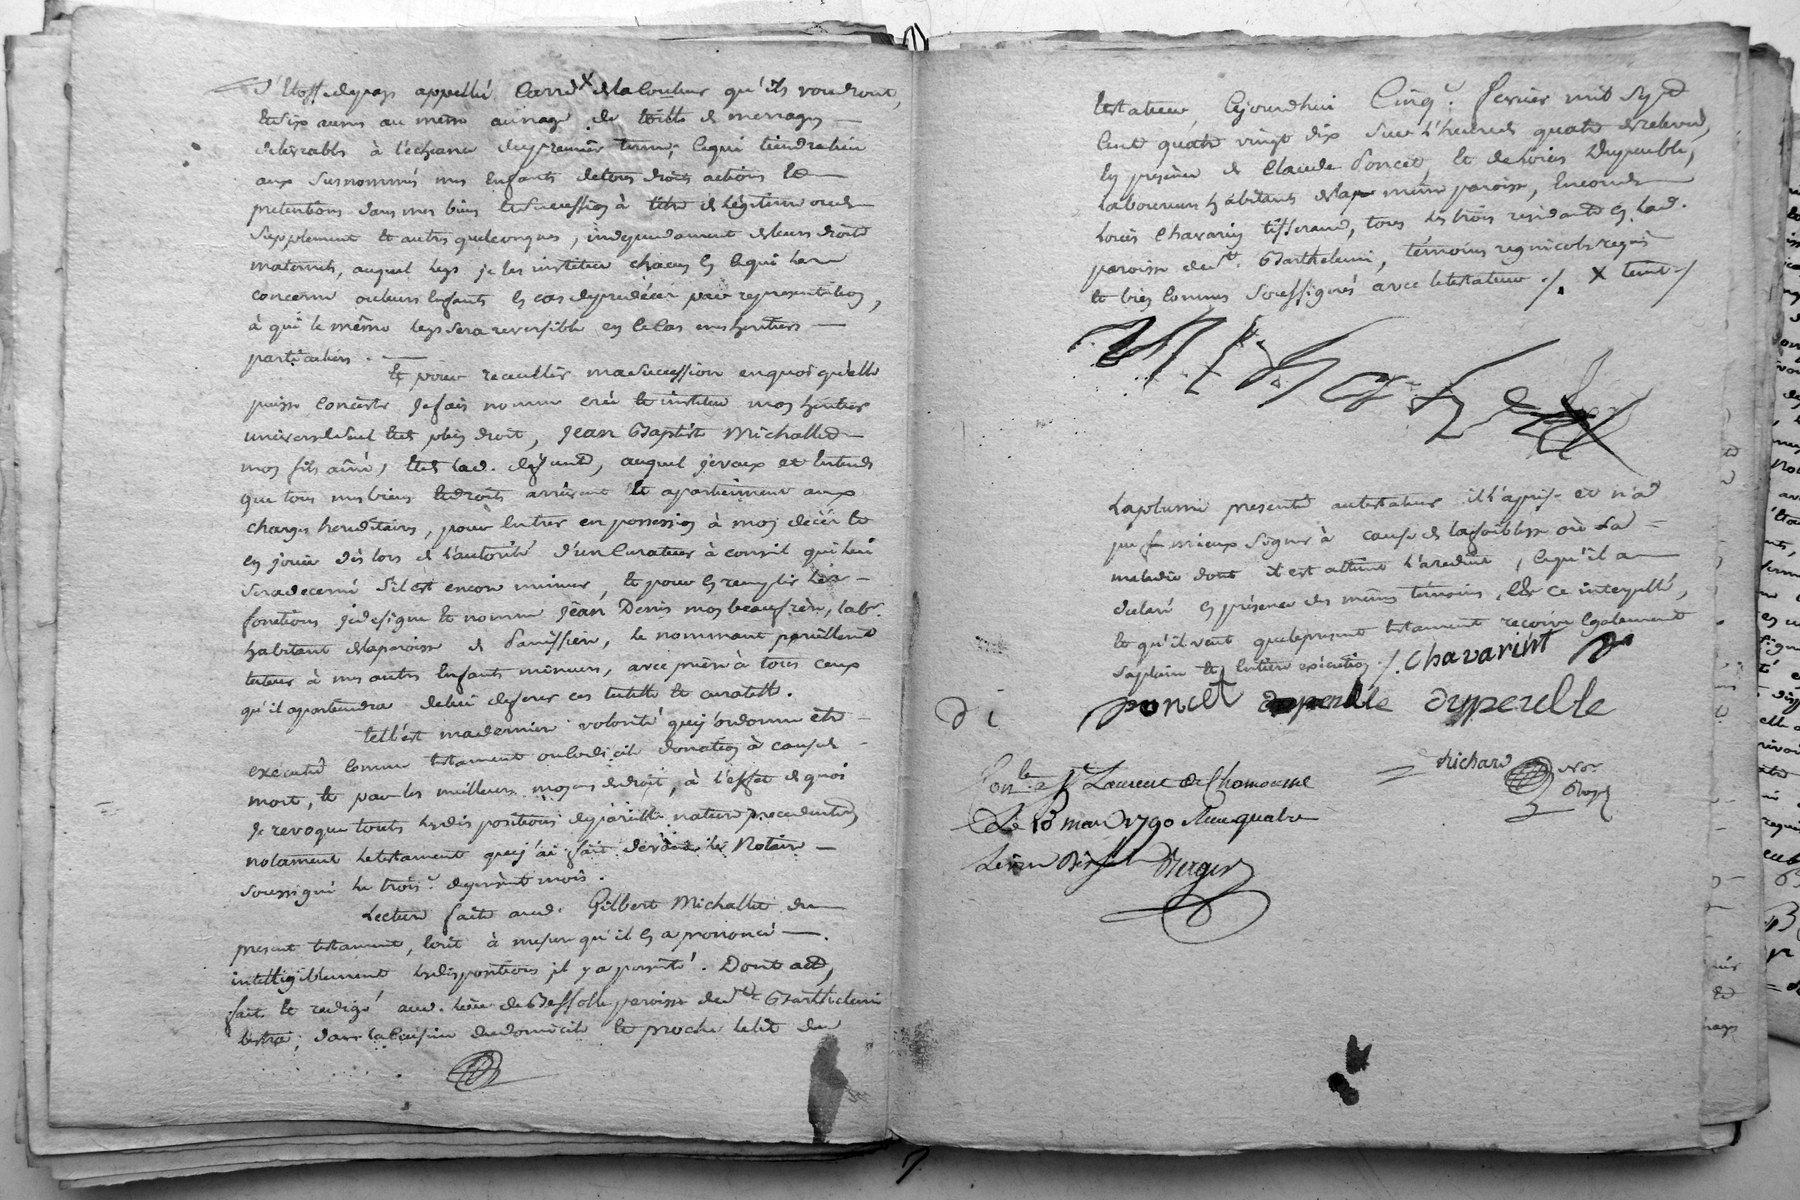 d'Etoffe de pays appellé Carrd x de la Couleur qu'ils voudront,
et six aunes au même aunage de toille de menages
delivrable à l'echeance du premier terme, ce qui tiendra lieu
aux susnommés mes Enfants de tous droits actions et
pretentions dans mes biens et succession à titre de légitime ou de
supplement et autres quelconques, independament de leurs droits
maternels, auquel legs je les institue chacun en ce qui le
concerne ou leurs Enfants en cas de predécés par representation,
à qui le même legs sera reversible en ce cas mes heritiers
particuliers.
Et pour recueillir ma succession en quoi qu'elle
puisse Consister je fais nomme créé et institue mon heritier
universel seul et de plein droit, Jean Baptiste Michallet
mon fils ainé, et de lad. defunte, auquel je veux et entends
que tous mes biens et droits arrivent et apartiennent aux
charges hereditaires, pour Entrer en possession à mon décés et
en jouir dés lors de l'autorité d'un Curateur à conseil qui lui
sera decerné s'il est encore mineur, et pour en remplir les
fonctions je designe et nomme Jean Denis mon beaufrère, labr.
habitant de la paroisse de Panissiere, le nommant pareillement
tuteur à mes autres Enfants mineurs, avec prière à tous ceux
qu'il apartiendra de lui deferer ces tutelle et curatelle.
Tell'est ma derniere volonté que j'ordonne etre
executée Comme testament ou Codicile donation à cause de
mort, et par les meilleurs moyens de droit, à l'effet de quoi
Je revoque toutes les dispositions de pareille nature precedentes
notament le testament que j'ai fait devant le Notaire
soussigné le trois.e du present mois.
Lecture faite aud. Gilbert Michallet du
present testament, Ecrit à mesure qu'il en a prononcé
intelligiblement les dispositions, il y a persisté. Dont acte,
fait et redigé aud. lieu de Bessolle paroisse de St. Barthelemi
Lestra, dans la Cuisine du domicile et proche le lit du
testateur Cejourdhui Cinq.e fevrier mil sept
Cent quatre vingt dix sur l'heure de quatre de relevée,
En présence de Claude Poncet, et de Louis Dupeuble,
laboureurs habitants de la même paroisse, Encore de
Louis Chavarin tisserand, tous les trois residants en lad.
paroisse de St. Barthelemi, temoins regnicoles requis
et bien Connus soussignés avec le testateur ./. x teint ./
La plume presenté au testateur il l'a prise et n'a
pu mieux signer à cause de la foiblesse où la
maladie dont il est atteint l'a reduit, ce qu'il a
declaré en présence des mêmes temoins, de ce interpellé,
et qu'il veut que le present testament recoive Egalement
sa pleine et Entiere exécution ./. Chavarint
poncet dupeuble dypeuble
Richard Nore Royal
Con.lé a St Laurent de Chamousset
Le 18 mars 1790
Berger